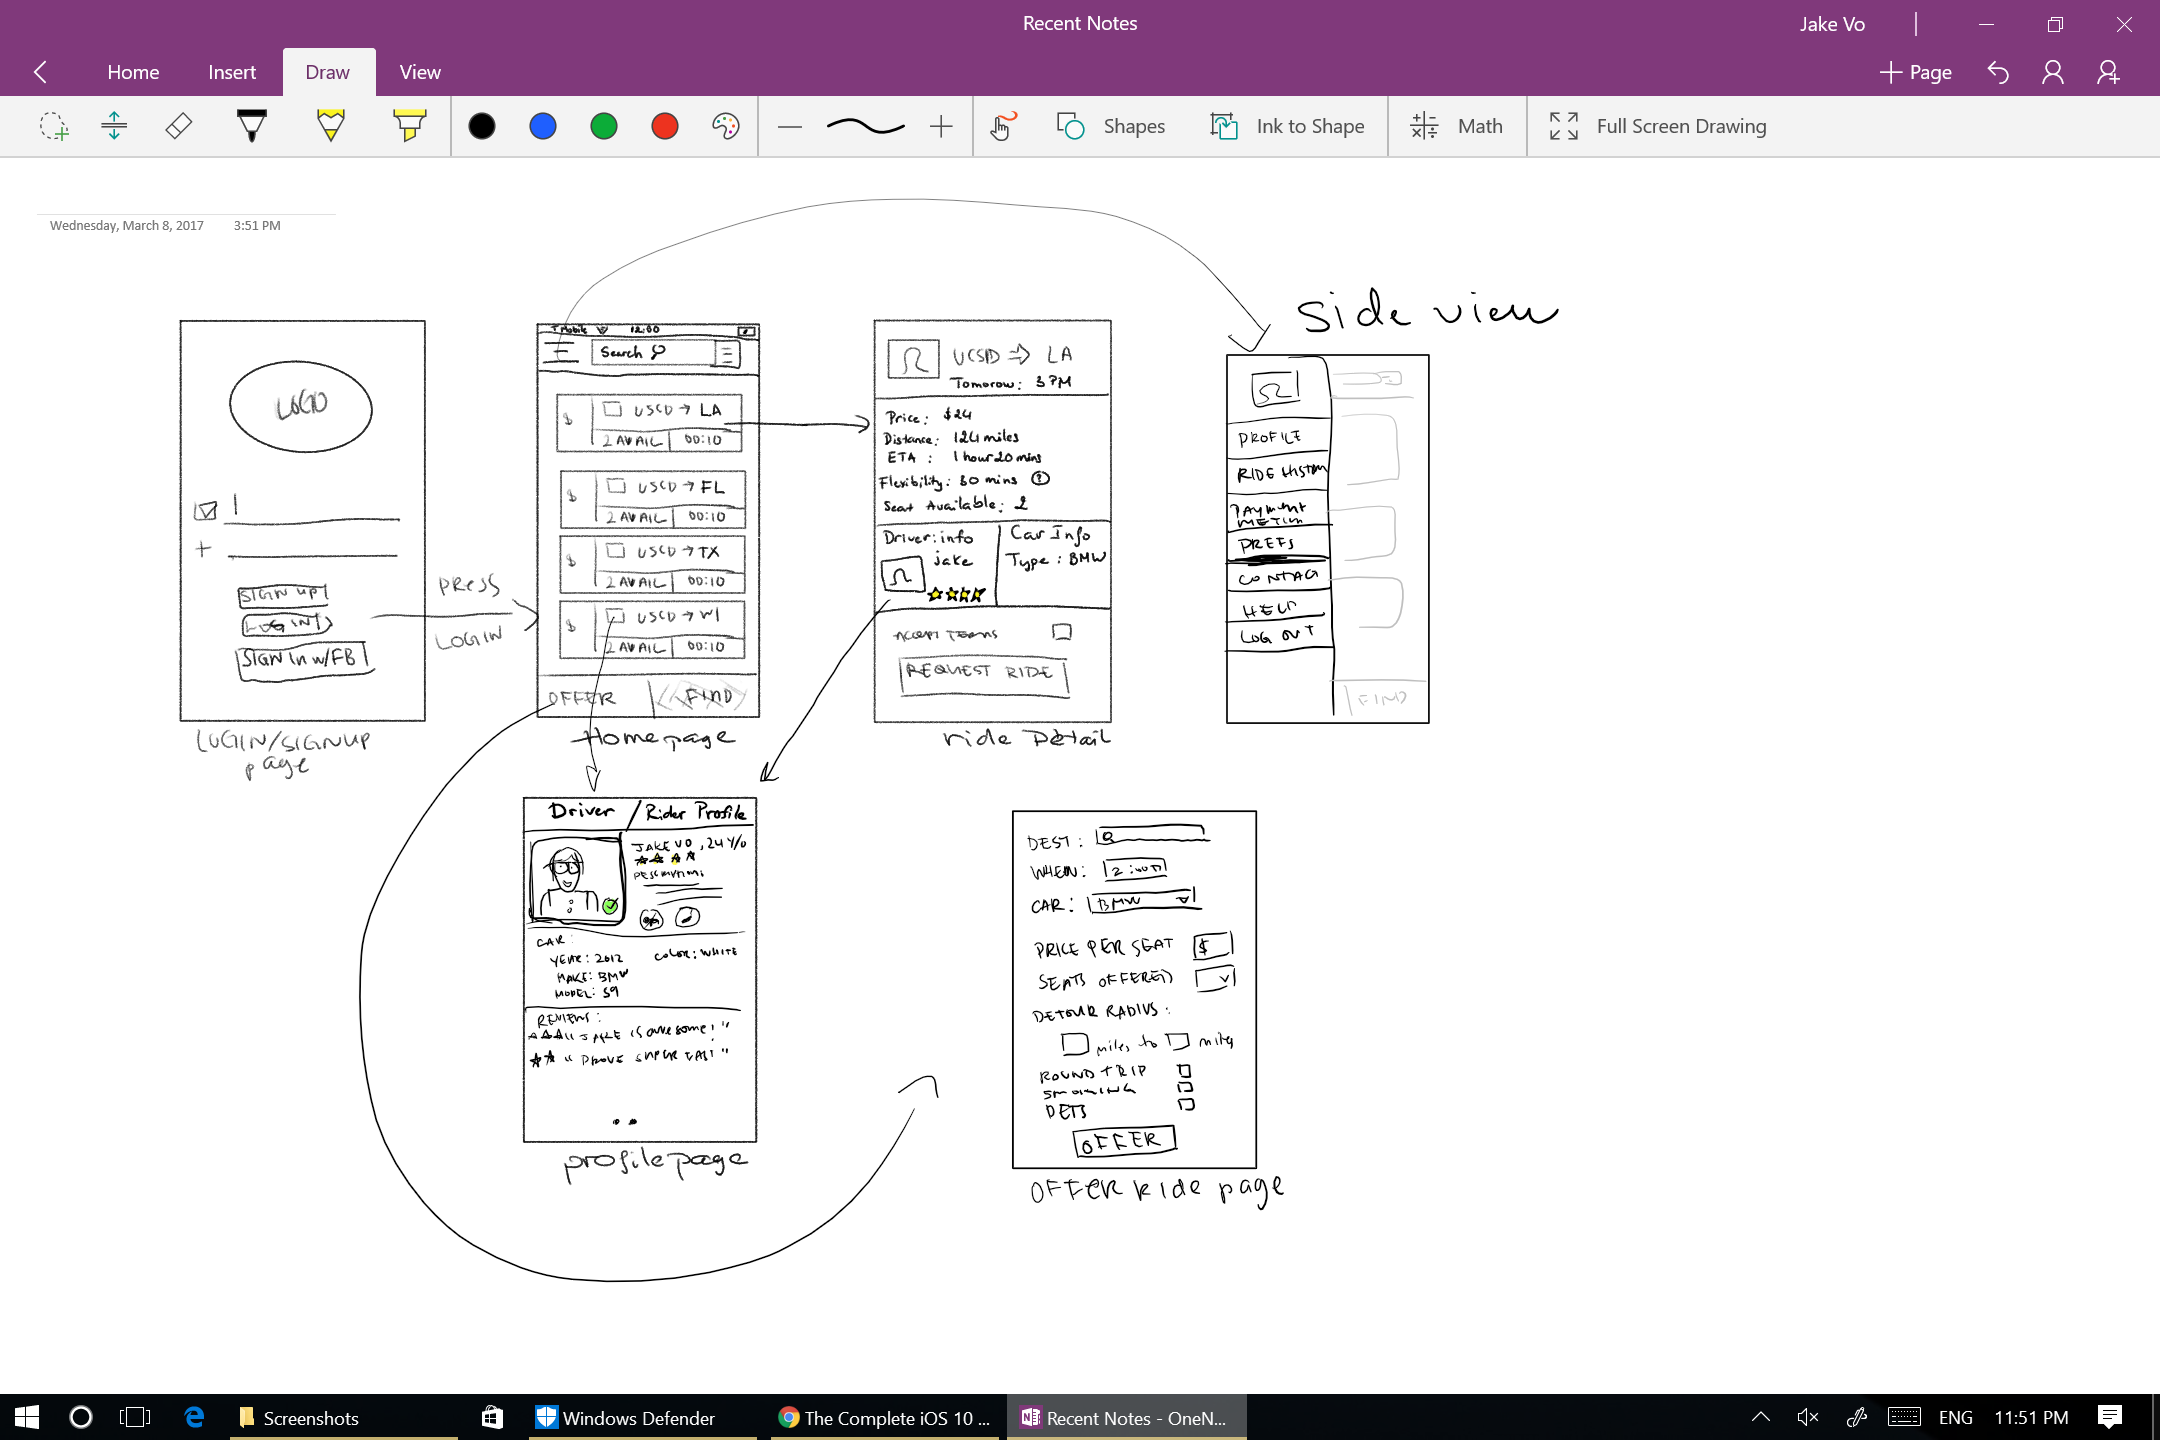 Recent Notes
Jake Vo
Home Insert Draw View
Page
Shapes Ink to Shape Math Full Screen Drawing
Wednesday, March 8, 2017 3:51 PM
LOGO
SIGN UP
LOGIN
SIGN In w/FB
LOGIN/SIGNUP
page
PRESS
LOGIN
T Mobile 12:00
Search
$ USCD → LA
2 AVAIL 00:10
$ USCD → FL
2 AVAIL 00:10
$ USCD → TX
2 AVAIL 00:10
$ USCD → WI
2 AVAIL 00:10
OFFER FIND
Homepage
UCSD ⇒ LA
Tomorow: 3PM
Price: $24
Distance: 124 miles
ETA : 1 hour 20 mins
Flexibility: 30 mins ?
Seat Available: 2
Driver: info
jake
Car Info
Type: BMW
ACCEPT TERMS
REQUEST RIDE
ride Detail
Side view
PROFILE
PAYMENT
PREFS
HELP
LOG OUT
FIND
Driver / Rider Profile
JAKE VO, 24 Y/O
CAR:
YEAR: 2012
MAKE: BMW
MODEL: S9
COLOR: WHITE
REVIEWS:
"JAKE is awesome!"
profile page
DEST:
WHEN:
CAR: BMW
PRICE PER SEAT $
SEATS OFFERED
DETOUR RADIUS:
miles to miles
ROUND TRIP
SMOKING
PETS
OFFER
OFFER RIDE page
Screenshots Windows Defender The Complete iOS 10 ... Recent Notes - OneN...
ENG 11:51 PM